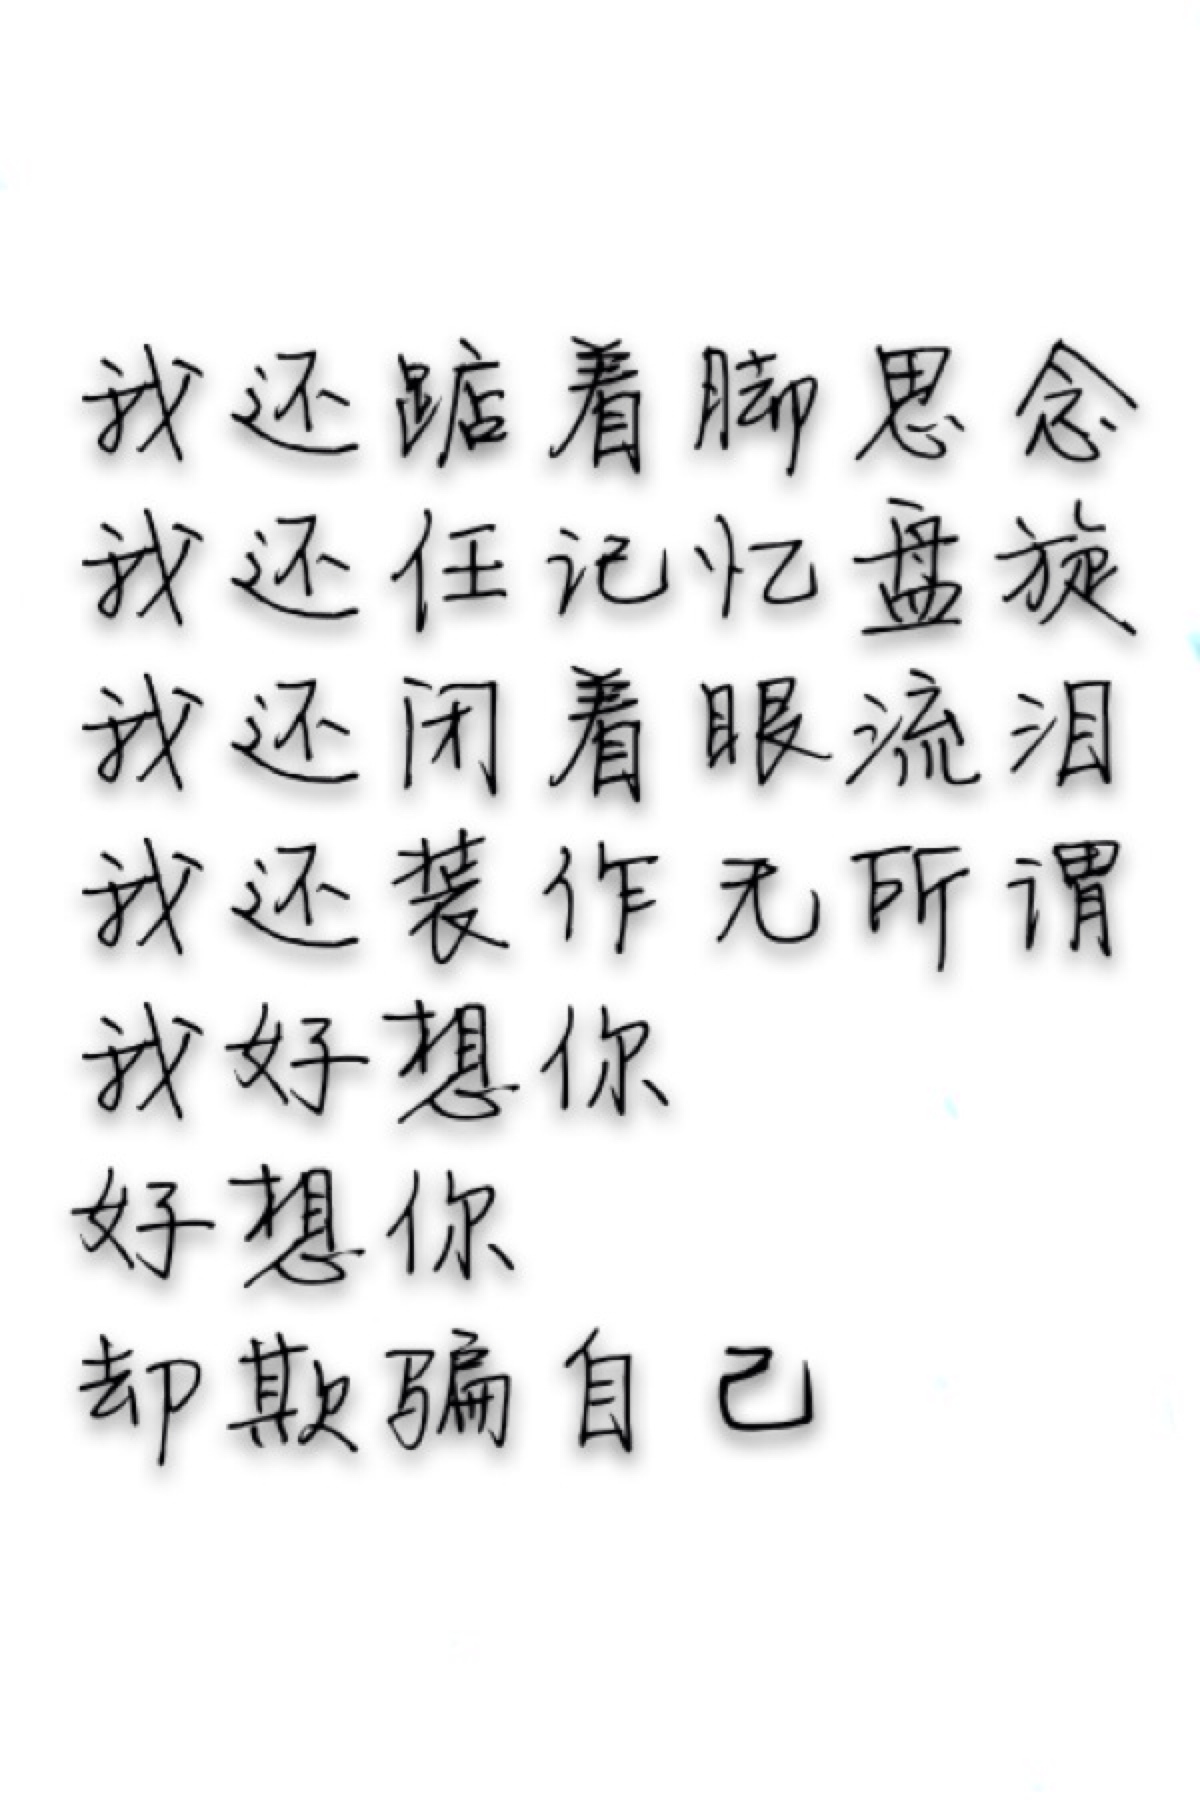 我还踮着脚思念
我还任记忆盘旋
我还闭着眼流泪
我还装作无所谓
我好想你
好想你
却欺骗自己